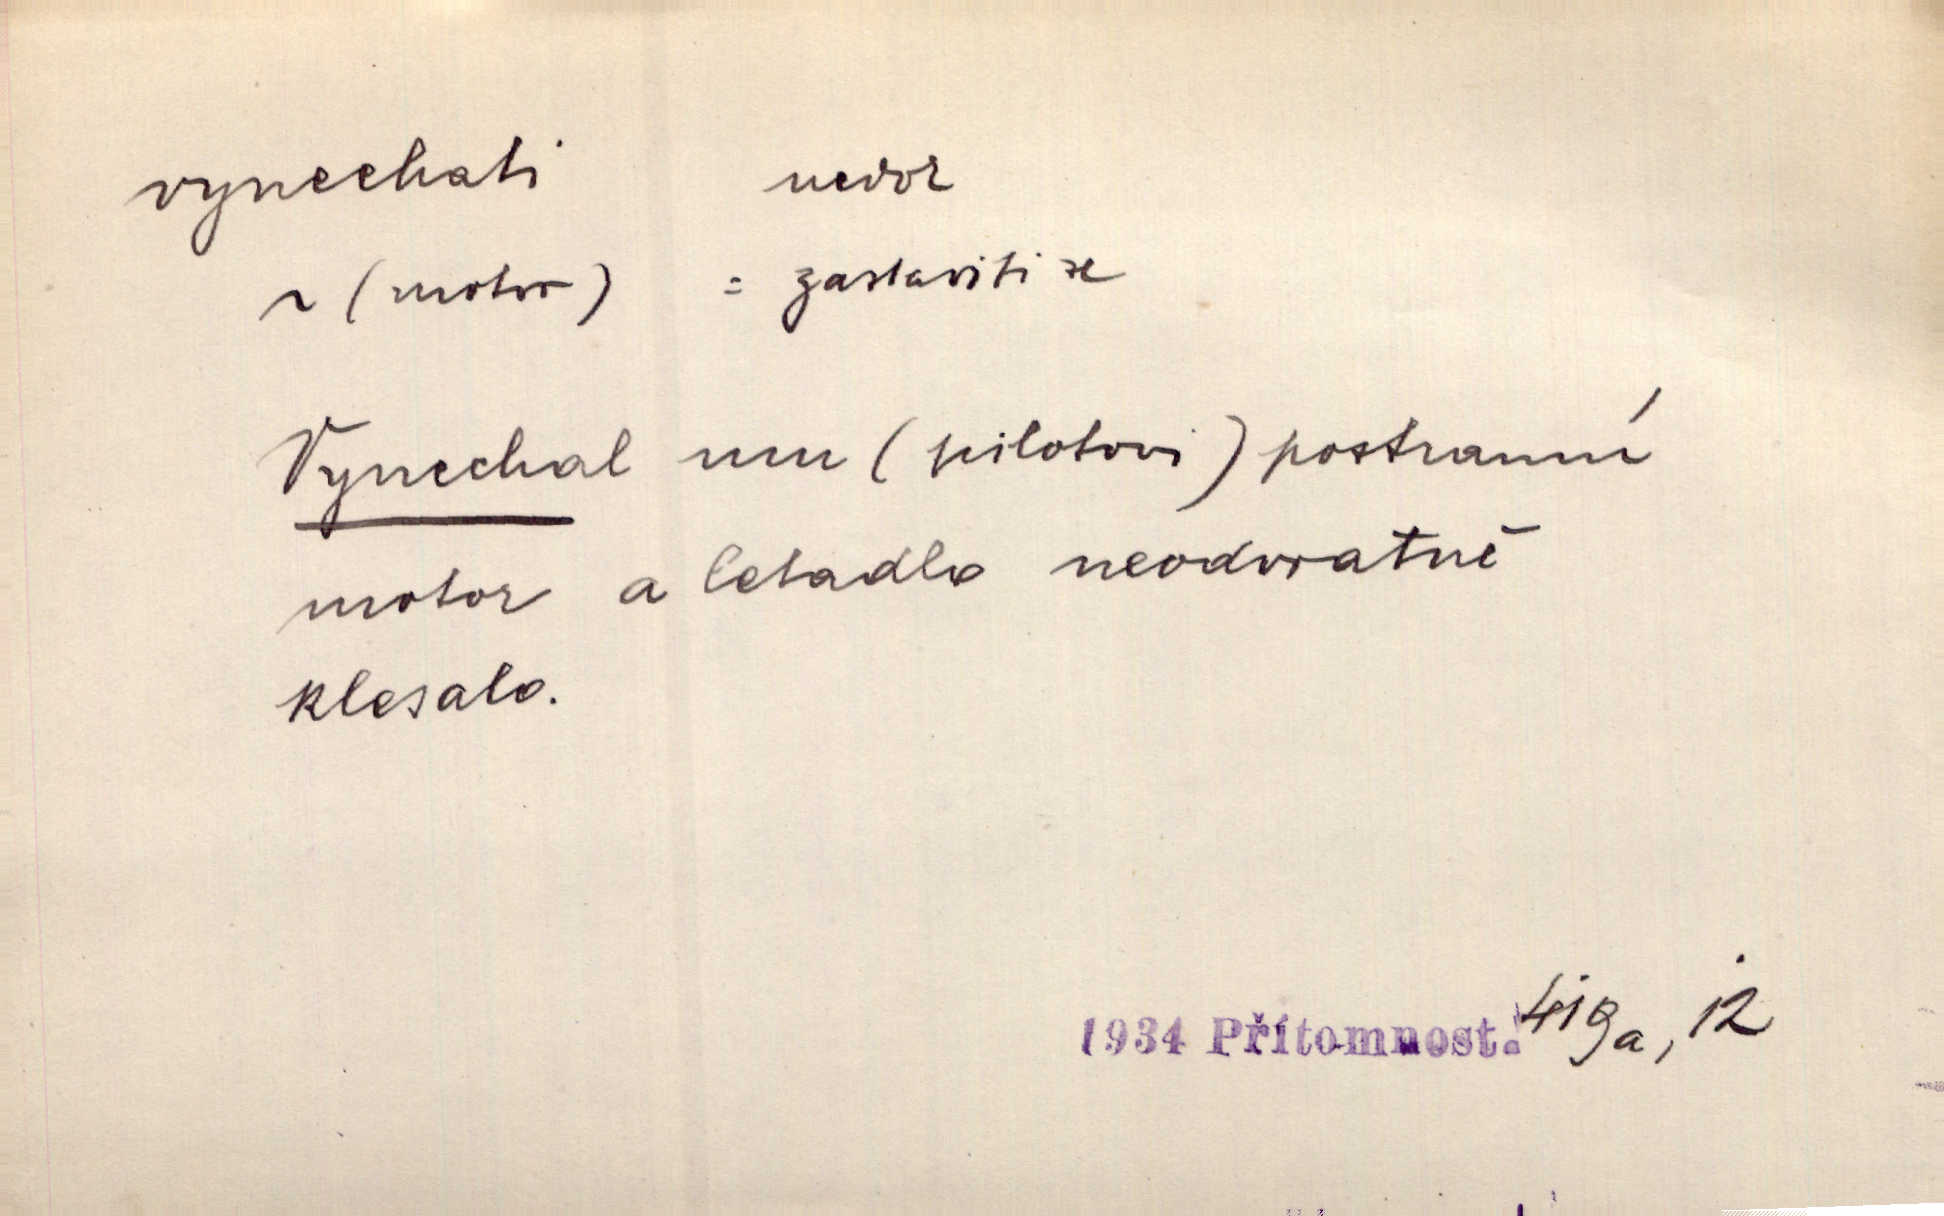 vynechati nedok
~ (motor) = zastaviti se
Vynechal mu (pilotovi) postranní
motor a letadlo neodvratně
klesalo.
1934 Přítomnost. 419a, 12